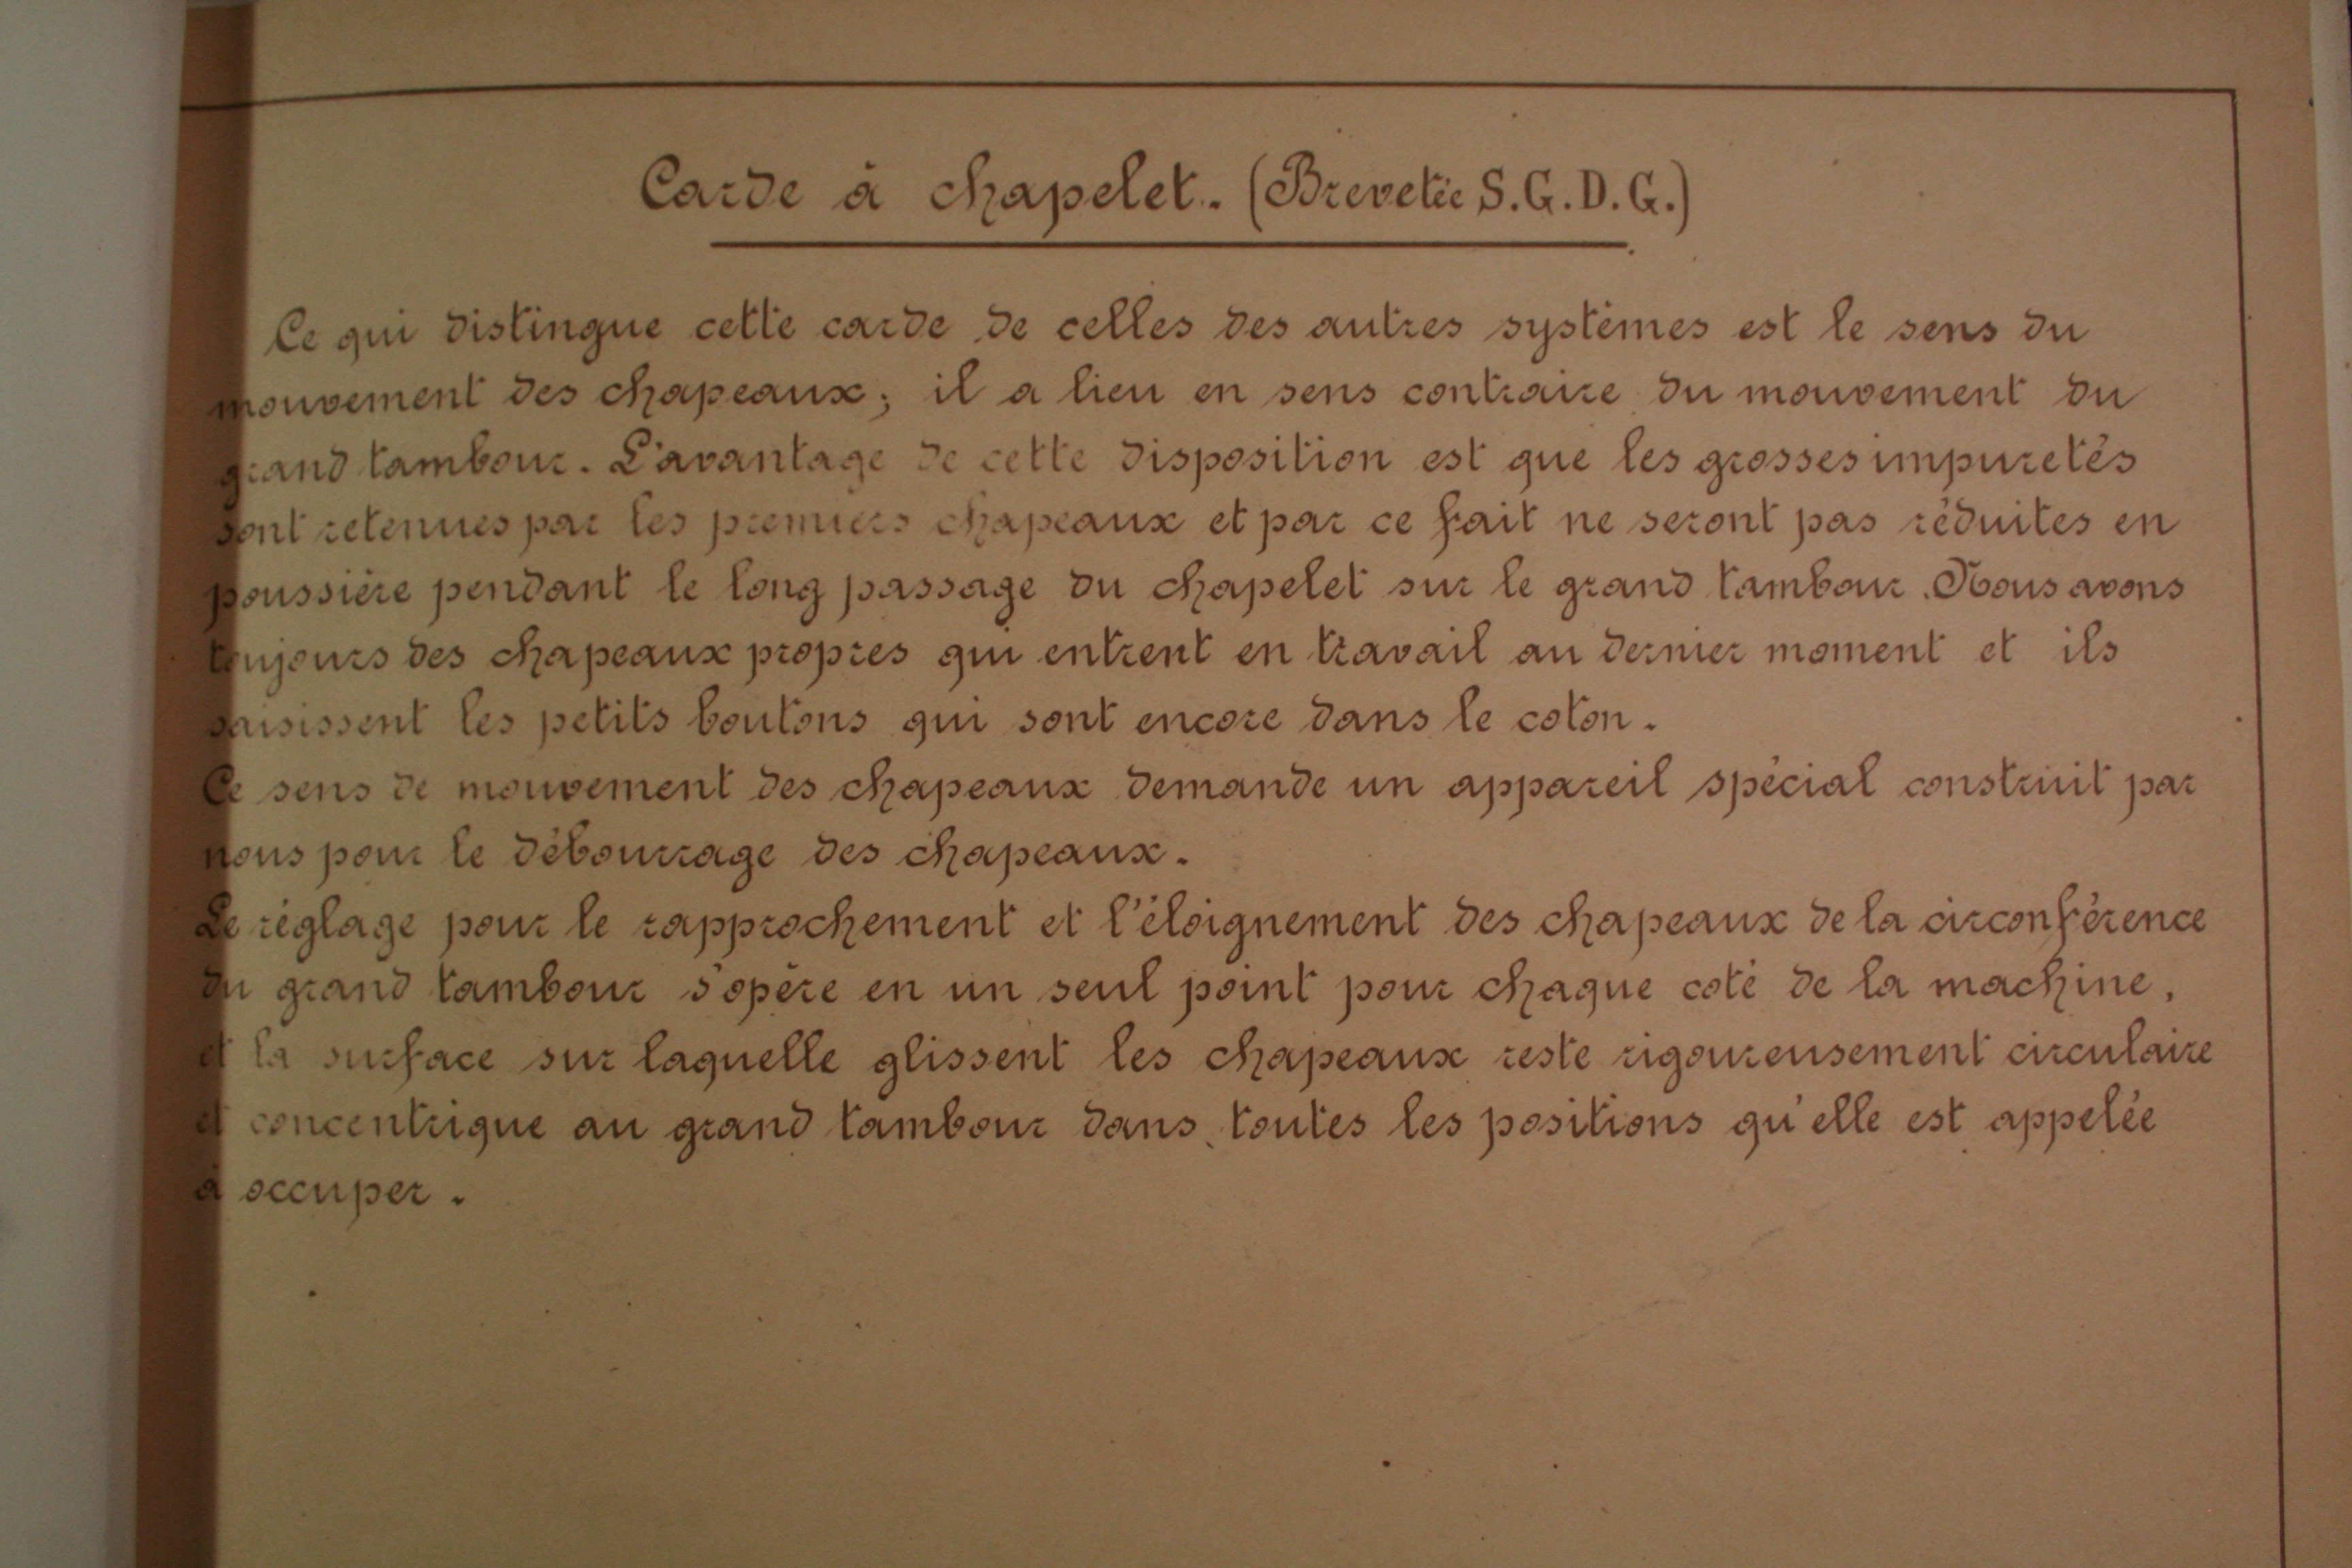 Carde à chapelet. (Brevetée S.G.D.G.)
Ce qui distingue cette carde de celles des autres systèmes est le sens du
mouvement des chapeaux; il a lieu en sens contraire du mouvement du
grand tambour. L'avantage de cette disposition est que les grosses impuretés
sont retenues par les premiers chapeaux et par ce fait ne seront pas réduites en
poussière pendant le long passage du chapelet sur le grand tambour. Nous avons
toujours des chapeaux propres qui entrent en travail au dernier moment et ils
saisissent les petits boutons qui sont encore dans le coton.
Ce sens de mouvement des chapeaux demande un appareil spécial construit par
nous pour le débourrage des chapeaux.
Le réglage pour le rapprochement et l'éloignement des chapeaux de la circonférence
du grand tambour s'opère en un seul point pour chaque coté de la machine,
et la surface sur laquelle glissent les chapeaux reste rigoureusement circulaire
et concentrique au grand tambour dans toutes les positions qu'elle est appelée
à occuper.